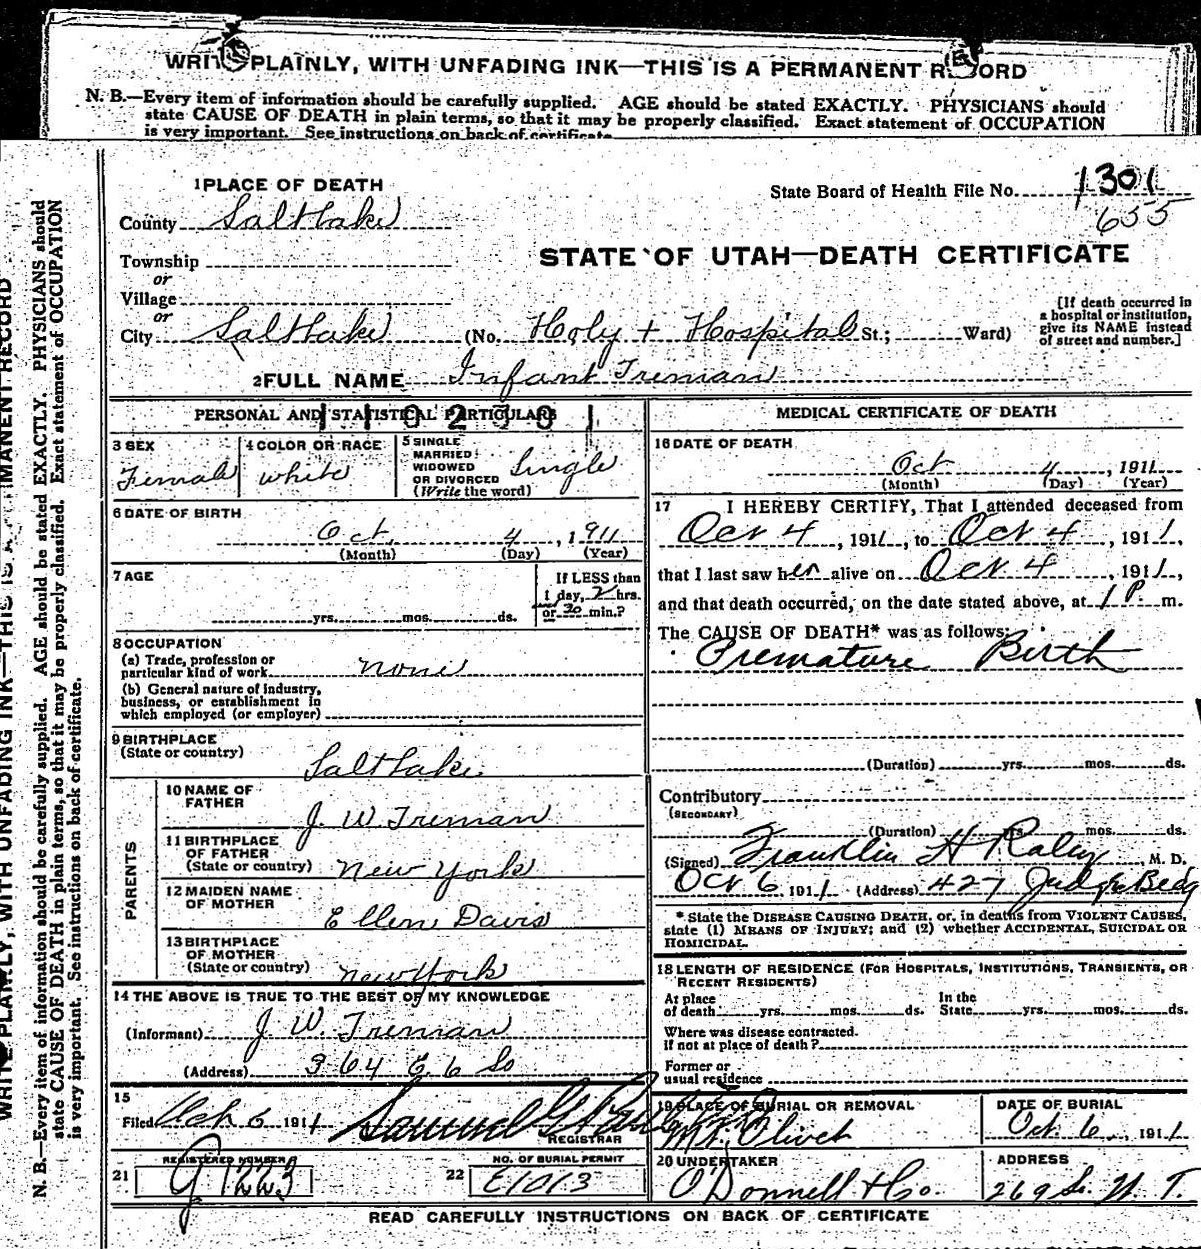 WRITE PLAINLY, WITH UNFADING INK—THIS IS A PERMANENT RECORD
N. B.—Every item of information should be carefully supplied. AGE should be stated EXACTLY. PHYSICIANS should
state CAUSE OF DEATH in plain terms, so that it may be properly classified. Exact statement of OCCUPATION
is very important. See instructions on back of certificate.
WRITE PLAINLY, WITH UNFADING INK—THIS IS A PERMANENT RECORD
N. B.—Every item of information should be carefully supplied. AGE should be stated EXACTLY. PHYSICIANS should
state CAUSE OF DEATH in plain terms, so that it may be properly classified. Exact statement of OCCUPATION
is very important. See instructions on back of certificate.
1 PLACE OF DEATH
State Board of Health File No. 1301
655
County Salt Lake
STATE OF UTAH—DEATH CERTIFICATE
Township
or
Village
or
City Salt Lake (No. Holy + Hospital St.; Ward)
[If death occurred in
a hospital or institution,
give its NAME instead
of street and number.]
2 FULL NAME Infant Treman
PERSONAL AND STATISTICAL PARTICULARS
3 SEX
Female
4 COLOR OR RACE
white
5 SINGLE
MARRIED
WIDOWED
OR DIVORCED
(Write the word)
Single
6 DATE OF BIRTH
Oct. 4, 1911
(Month) (Day) (Year)
7 AGE
yrs. mos. ds.
If LESS than
1 day, 2 hrs.
or 30 min.?
8 OCCUPATION
(a) Trade, profession or
particular kind of work none
(b) General nature of industry,
business, or establishment in
which employed (or employer)
9 BIRTHPLACE
(State or country)
Salt Lake
PARENTS
10 NAME OF
FATHER
J. W Treman
11 BIRTHPLACE
OF FATHER
(State or country) New York
12 MAIDEN NAME
OF MOTHER
Ellen Davis
13 BIRTHPLACE
OF MOTHER
(State or country)
New York
14 THE ABOVE IS TRUE TO THE BEST OF MY KNOWLEDGE
(Informant) J. W. Treman
(Address) 364 E 6 So
15
Filed Oct 6 1911 Samuel G
REGISTRAR
REGISTERED NUMBER
21 G1223
NO. OF BURIAL PERMIT
22 E1013
MEDICAL CERTIFICATE OF DEATH
16 DATE OF DEATH
Oct 4, 1911
(Month) (Day) (Year)
17 I HEREBY CERTIFY, That I attended deceased from
Oct 4, 1911, to Oct 4, 1911,
that I last saw her alive on Oct. 4, 1911,
and that death occurred, on the date stated above, at 1 P. m.
The CAUSE OF DEATH* was as follows:
Premature Birth
(Duration) yrs. mos. ds.
Contributory
(SECONDARY)
(Duration) yrs. mos. ds.
(Signed) Franklin H Raley, M. D.
Oct 6 1911 (Address) 427 Judge Bldg
* State the DISEASE CAUSING DEATH, or, in deaths from VIOLENT CAUSES,
state (1) MEANS OF INJURY; and (2) whether ACCIDENTAL, SUICIDAL OR
HOMICIDAL.
18 LENGTH OF RESIDENCE (FOR HOSPITALS, INSTITUTIONS, TRANSIENTS, OR
RECENT RESIDENTS)
At place
of death yrs. mos. ds.
In the
State yrs. mos. ds.
Where was disease contracted.
If not at place of death?
Former or
usual residence
19 PLACE OF BURIAL OR REMOVAL
Mt. Olivet
DATE OF BURIAL
Oct. 6, 1911
20 UNDERTAKER
O'Donnell + Co.
ADDRESS
269 So. W. T.
READ CAREFULLY INSTRUCTIONS ON BACK OF CERTIFICATE